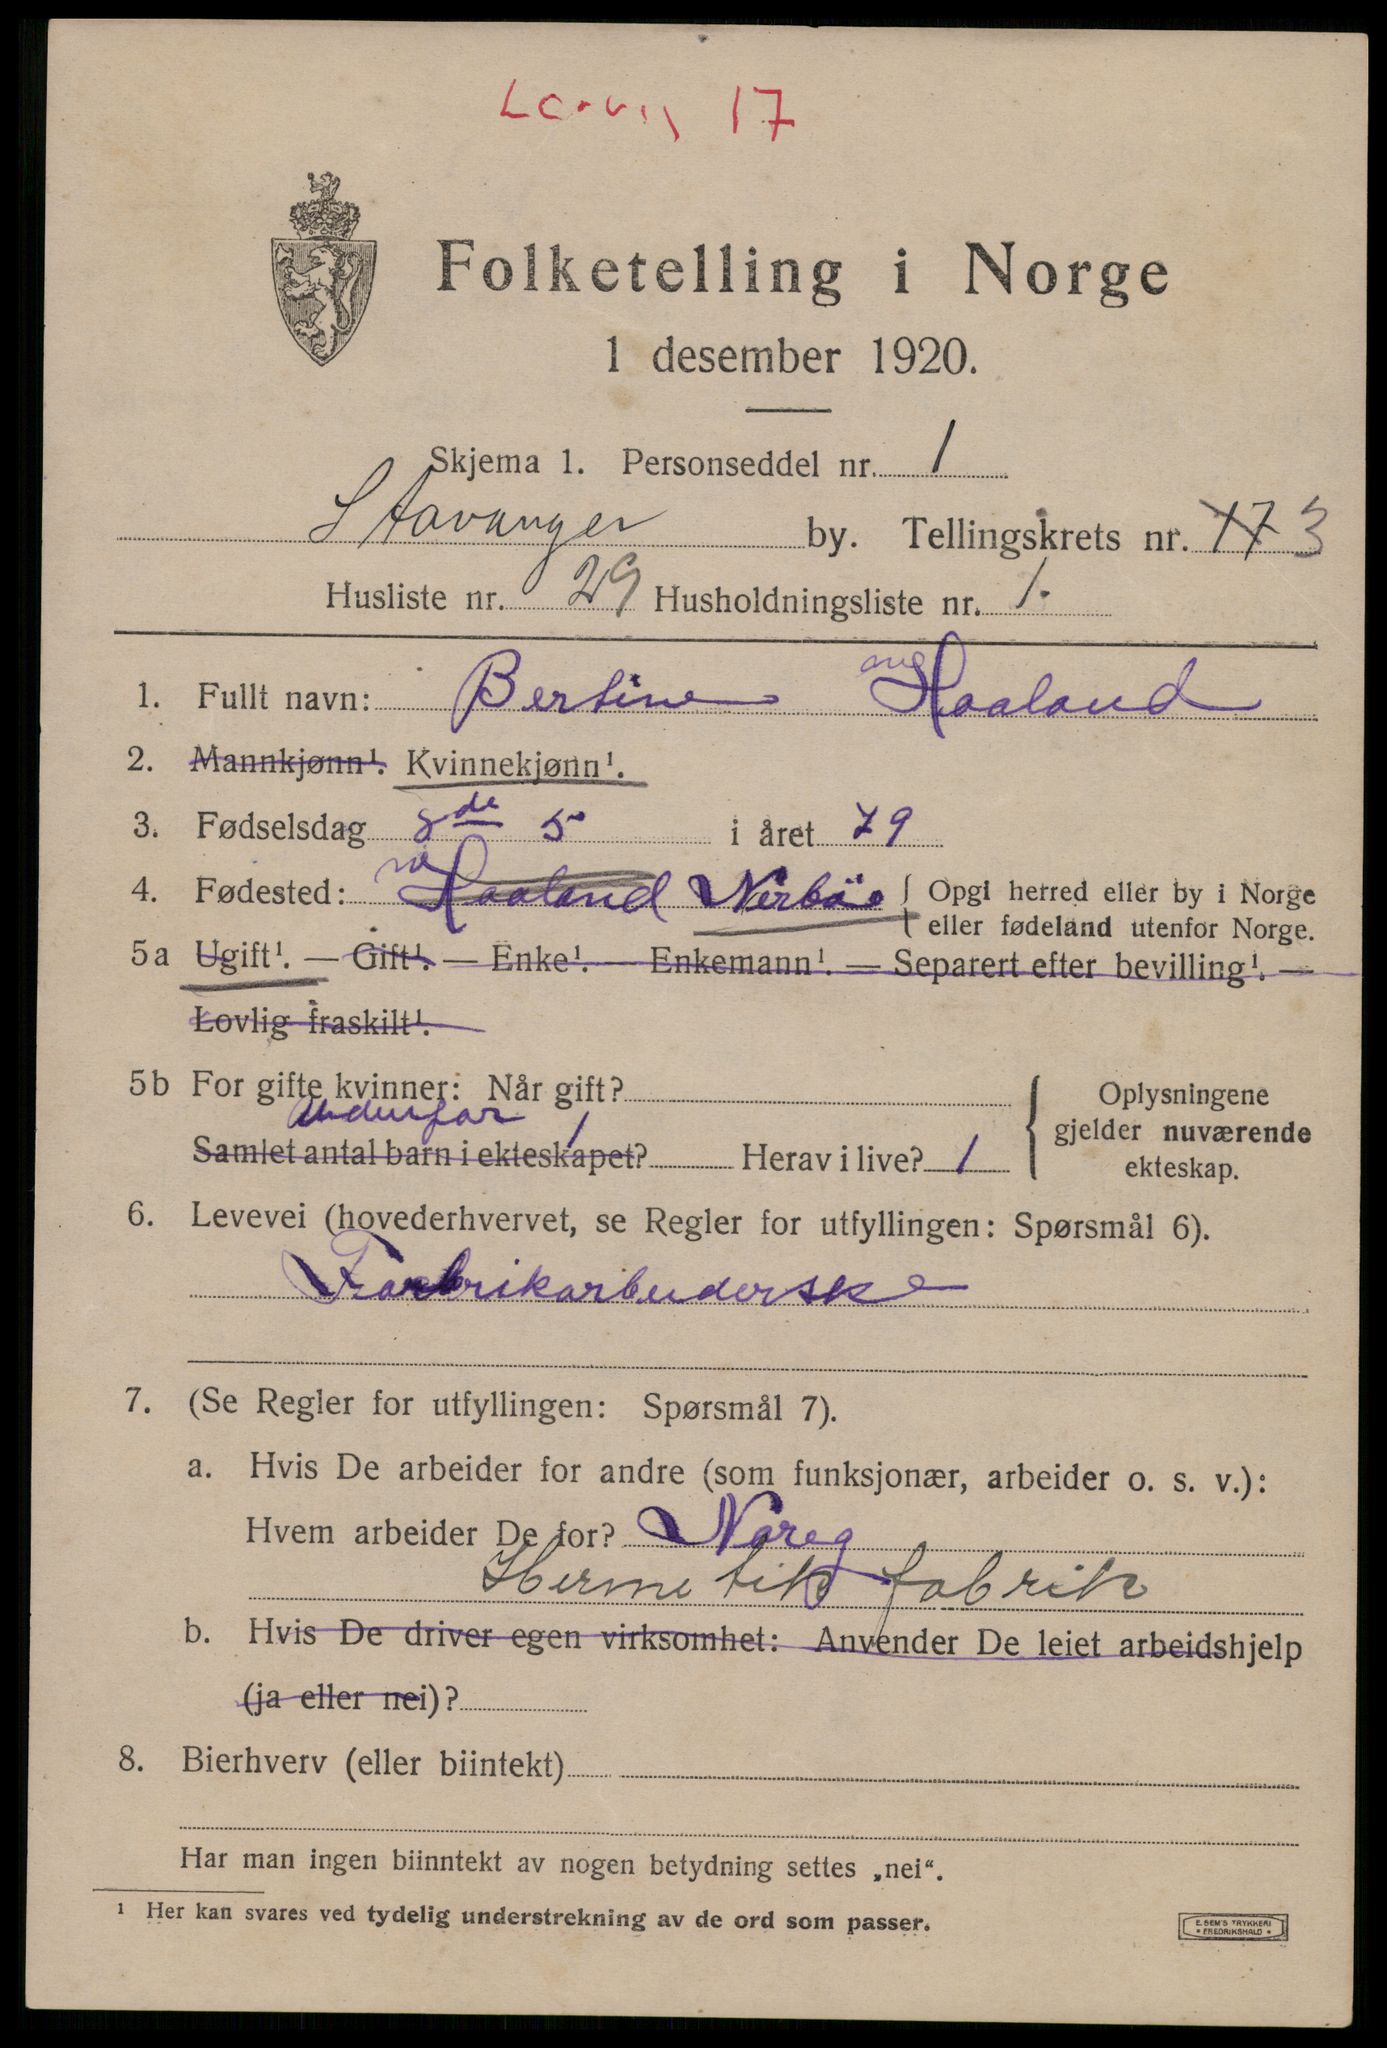 17
Folketelling i Norge
1 desember 1920.
Skjema 1. Personseddel nr. 1
Stavanger by. Tellingskrets nr. 17 3
Husliste nr. 29 Husholdningsliste nr. 1.
1. Fullt navn: Bertine Haaland
2. Mannkjønn¹. Kvinnekjønn¹.
3. Fødselsdag 8de 5 i året 79
4. Fødested: Haaland Nerbö { Opgi herred eller by i Norge
eller fødeland utenfor Norge.
5a Ugift¹. — Gift¹. — Enke¹. — Enkemann¹. — Separert efter bevilling¹. —
Lovlig fraskilt¹.
5b For gifte kvinner: Når gift?
Samlet antal barn i ekteskapet? 1 Herav i live? 1
Oplysningene
gjelder nuværende
ekteskap.
6. Levevei (hovederhvervet, se Regler for utfyllingen: Spørsmål 6).
Fabrikarbeiderske
7. (Se Regler for utfyllingen: Spørsmål 7).
a. Hvis De arbeider for andre (som funksjonær, arbeider o. s. v.):
Hvem arbeider De for? Noreg
Hermetik fabrik
b. Hvis De driver egen virksomhet: Anvender De leiet arbeidshjelp
(ja eller nei)?
8. Bierhverv (eller biintekt)
Har man ingen biinntekt av nogen betydning settes „nei“.
¹ Her kan svares ved tydelig understrekning av de ord som passer.
E. SEM'S TRYKKERI
* FREDRIKSHALD *